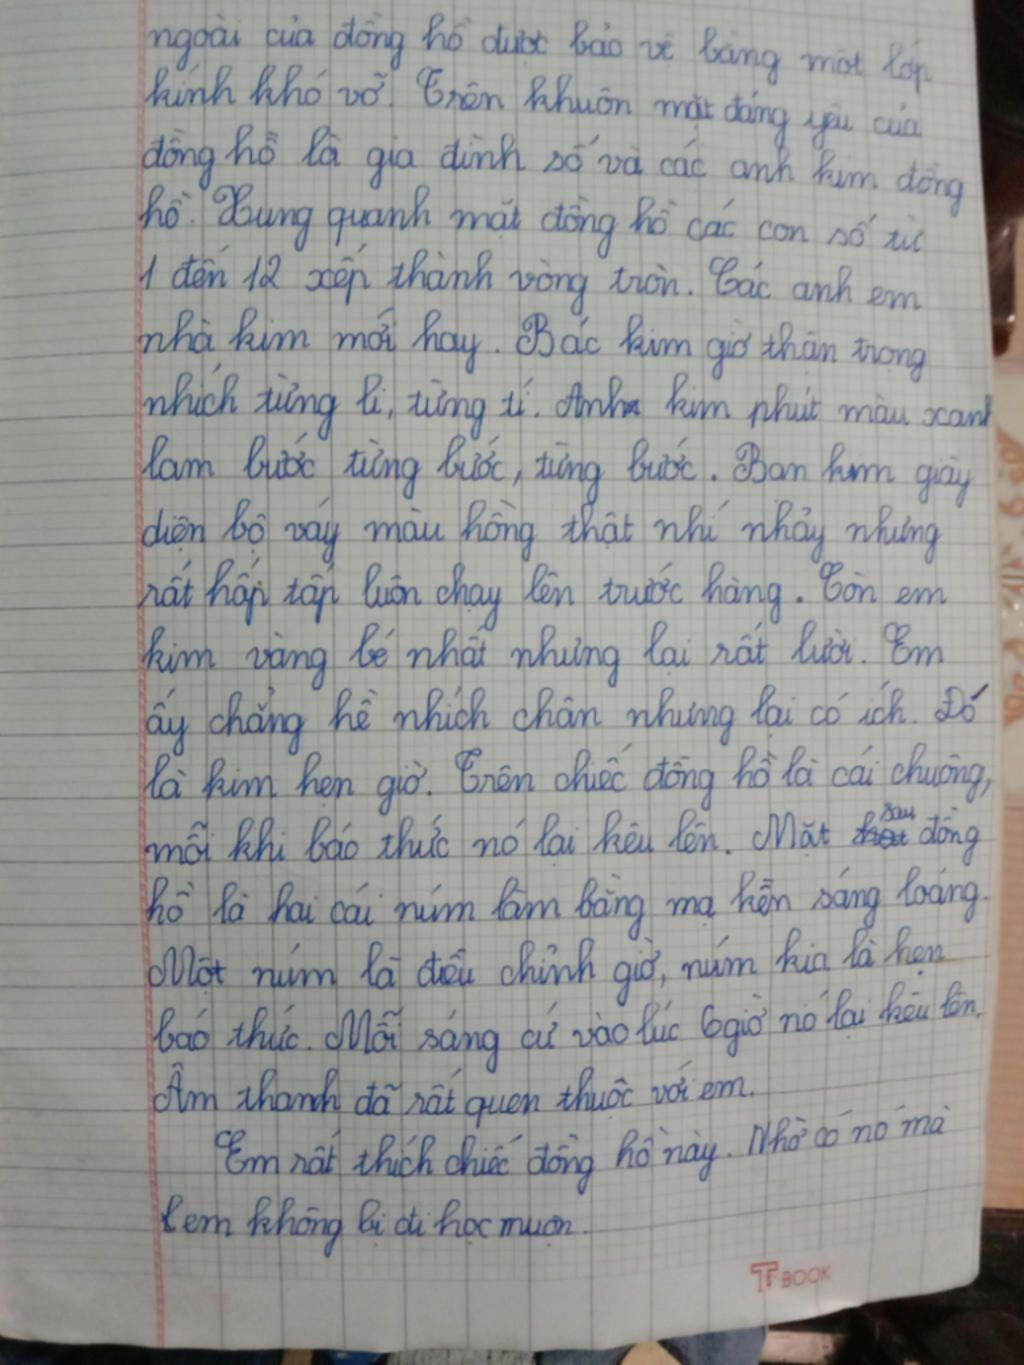 ngoài của đồng hồ được bảo vệ bằng một lớp
kính khó vỡ. Trên khuôn mặt đáng yêu của
đồng hồ là gia đình số và các anh kim đồng
hồ. Xung quanh mặt đồng hồ các con số từ
1 đến 12 xếp thành vòng tròn. Các anh em
nhà kim mới hay. Bác kim giờ thận trong
nhích từng li, từng tí. Anh kim phút màu xanh
lam bước từng bước, từng bước. Bạn kim giây
diện bộ váy màu hồng thật nhí nhảy nhưng
rất hấp tấp luôn chạy lên trước hàng. Còn em
kim vàng bé nhất nhưng lại rất lười. Em
ấy chẳng hề nhích chân nhưng lại có ích. Đó
là kim hẹn giờ. Trên chiếc đồng hồ là cái chuông,
mỗi khi báo thức nó lại kêu lên. Mặt sau đồng
hồ là hai cái núm làm bằng mạ kền sáng loáng.
Một núm là điều chỉnh giờ, núm kia là hẹn
báo thức. Mỗi sáng cứ vào lúc 6 giờ nó lại kêu lên.
Âm thanh đã rất quen thuộc với em.
Em rất thích chiếc đồng hồ này. Nhờ có nó mà
em không bị đi học muộn.
TP BOOK